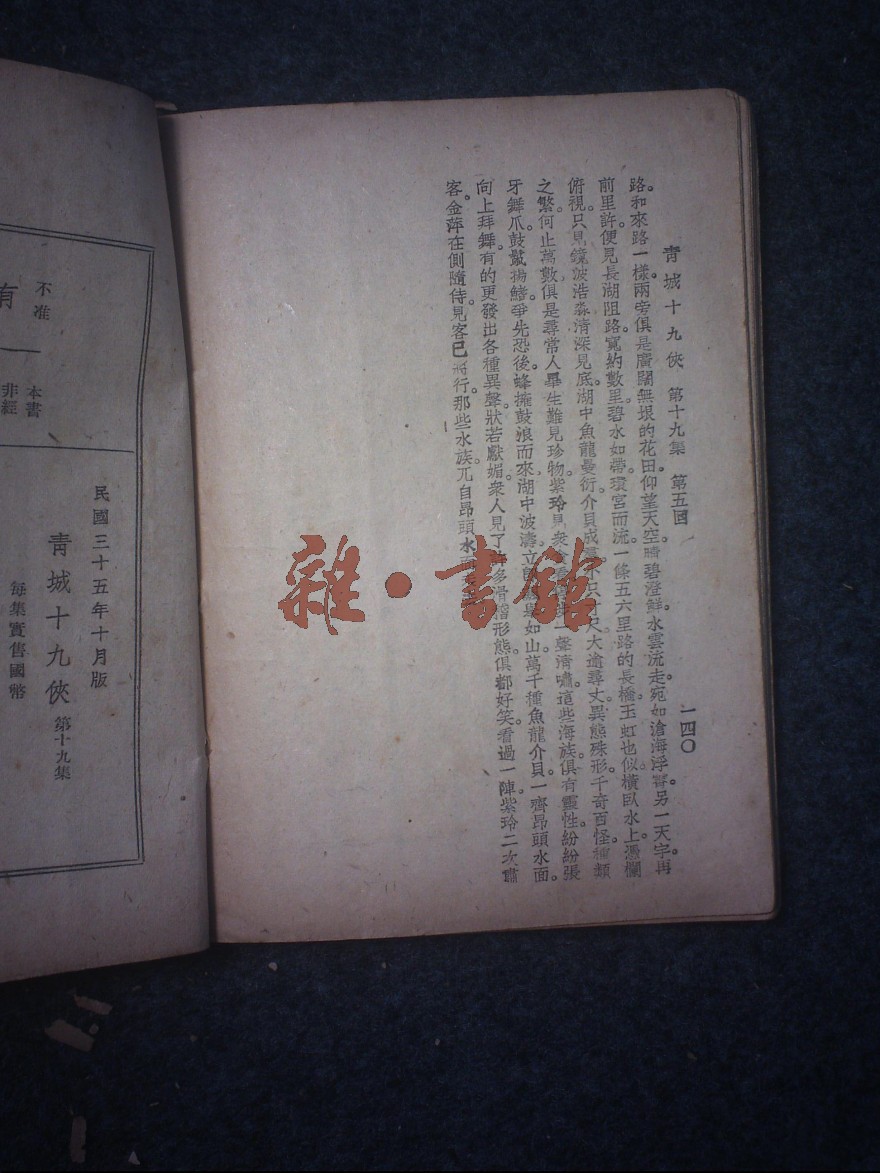 青城十九俠 第十九集 第五回 一四〇
路。和來路一樣。兩旁俱是廣闊無垠的花田。仰望天空。晴碧澄鮮。水雲流走。宛如滄海浮霄。另一天宇。再
前里許。便見長湖阻路。寬約數里。碧水如帶。環宮而流。一條五六里路的長橋。玉虹也似。橫臥水上。憑欄
俯視。只見鏡波浩淼。清深見底。湖中魚龍曼衍。介貝成 小只 尺。大逾尋丈。異態殊形。千奇百怪。種類
之繁。何止萬數。俱是尋常人畢生難見珍物。紫玲見衆 聲清嘯。這些海族。俱有靈性。紛紛張
牙舞爪。鼓鬣揚鰭。爭先恐後。蜂擁鼓浪而來。湖中波濤。立即 如山。萬千種魚龍介貝。一齊昂頭水面。
向上拜舞。有的更發出各種異聲。狀若獻媚。衆人見了許多滑稽形態。俱都好笑。看過一陣。紫玲二次嘯
客。金萍在側隨侍。見客已將行。那些水族。兀自昂頭水面
雜·書館
不准
有
本書
非經
民國三十五年十月版
青城十九俠 第十九集
每集實售國幣